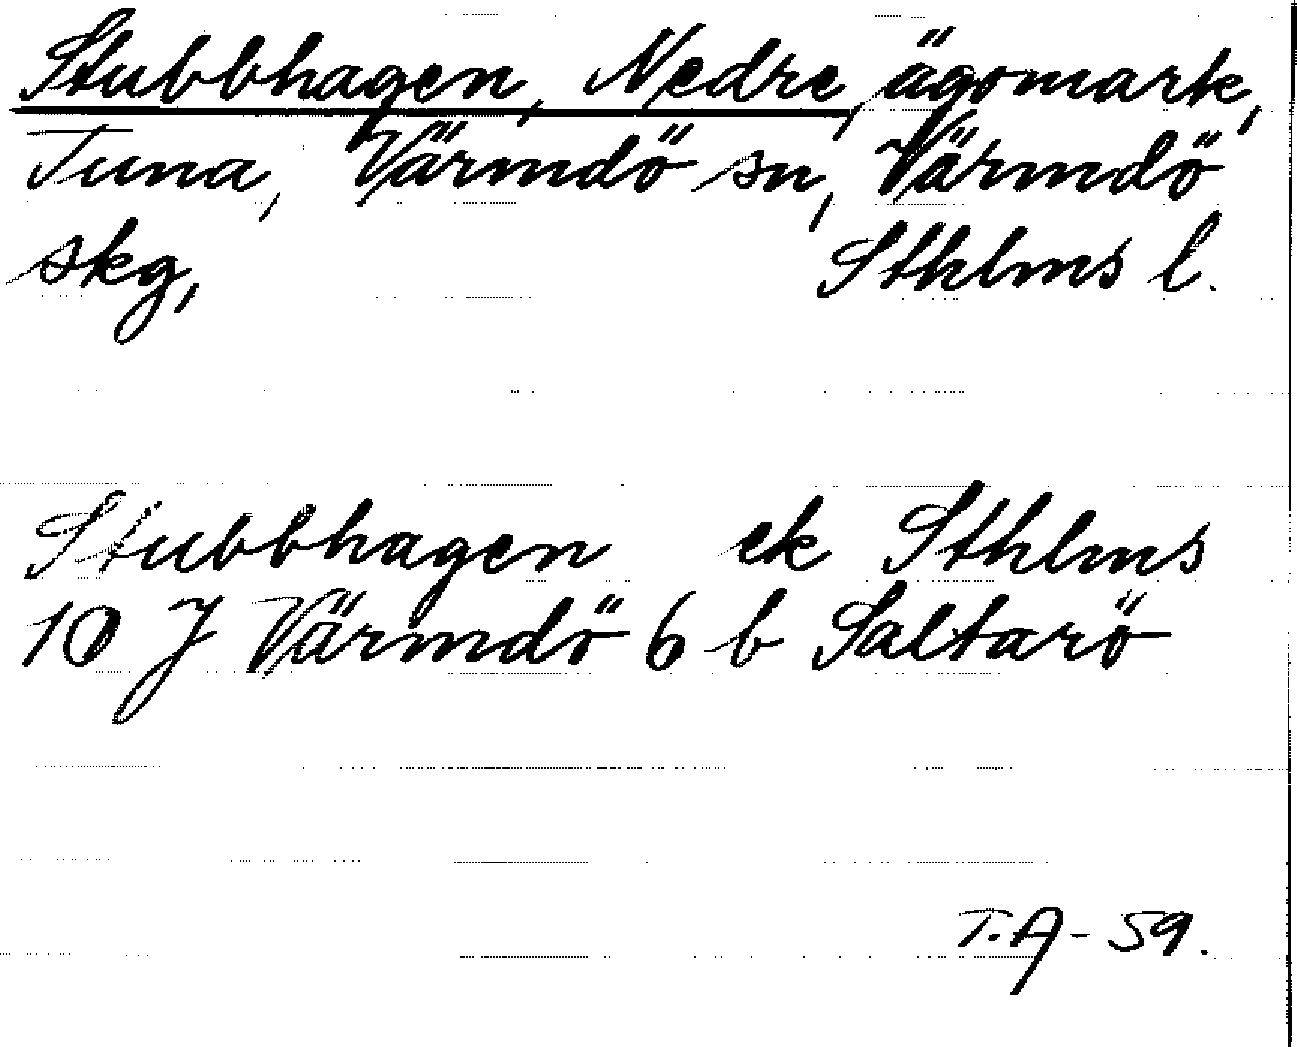 Stubbhagen, Nedre, ägomark,
Tuna, Värmdö sn, Värmdö
skg, Sthlms l.
Stubbhagen ek Sthlms
10 J Värmdö 6 b Saltarö
T.A-59.